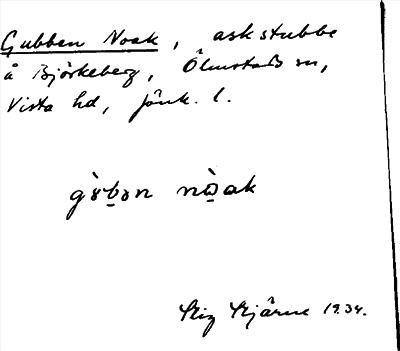 Gubben Noak, askstubbe
å Björkeberg, Ölmstads sn,
Vista hd, Jönk. l.
gɤ̀b̲ən nɷ̀ak
Stig Stjärne 1934.